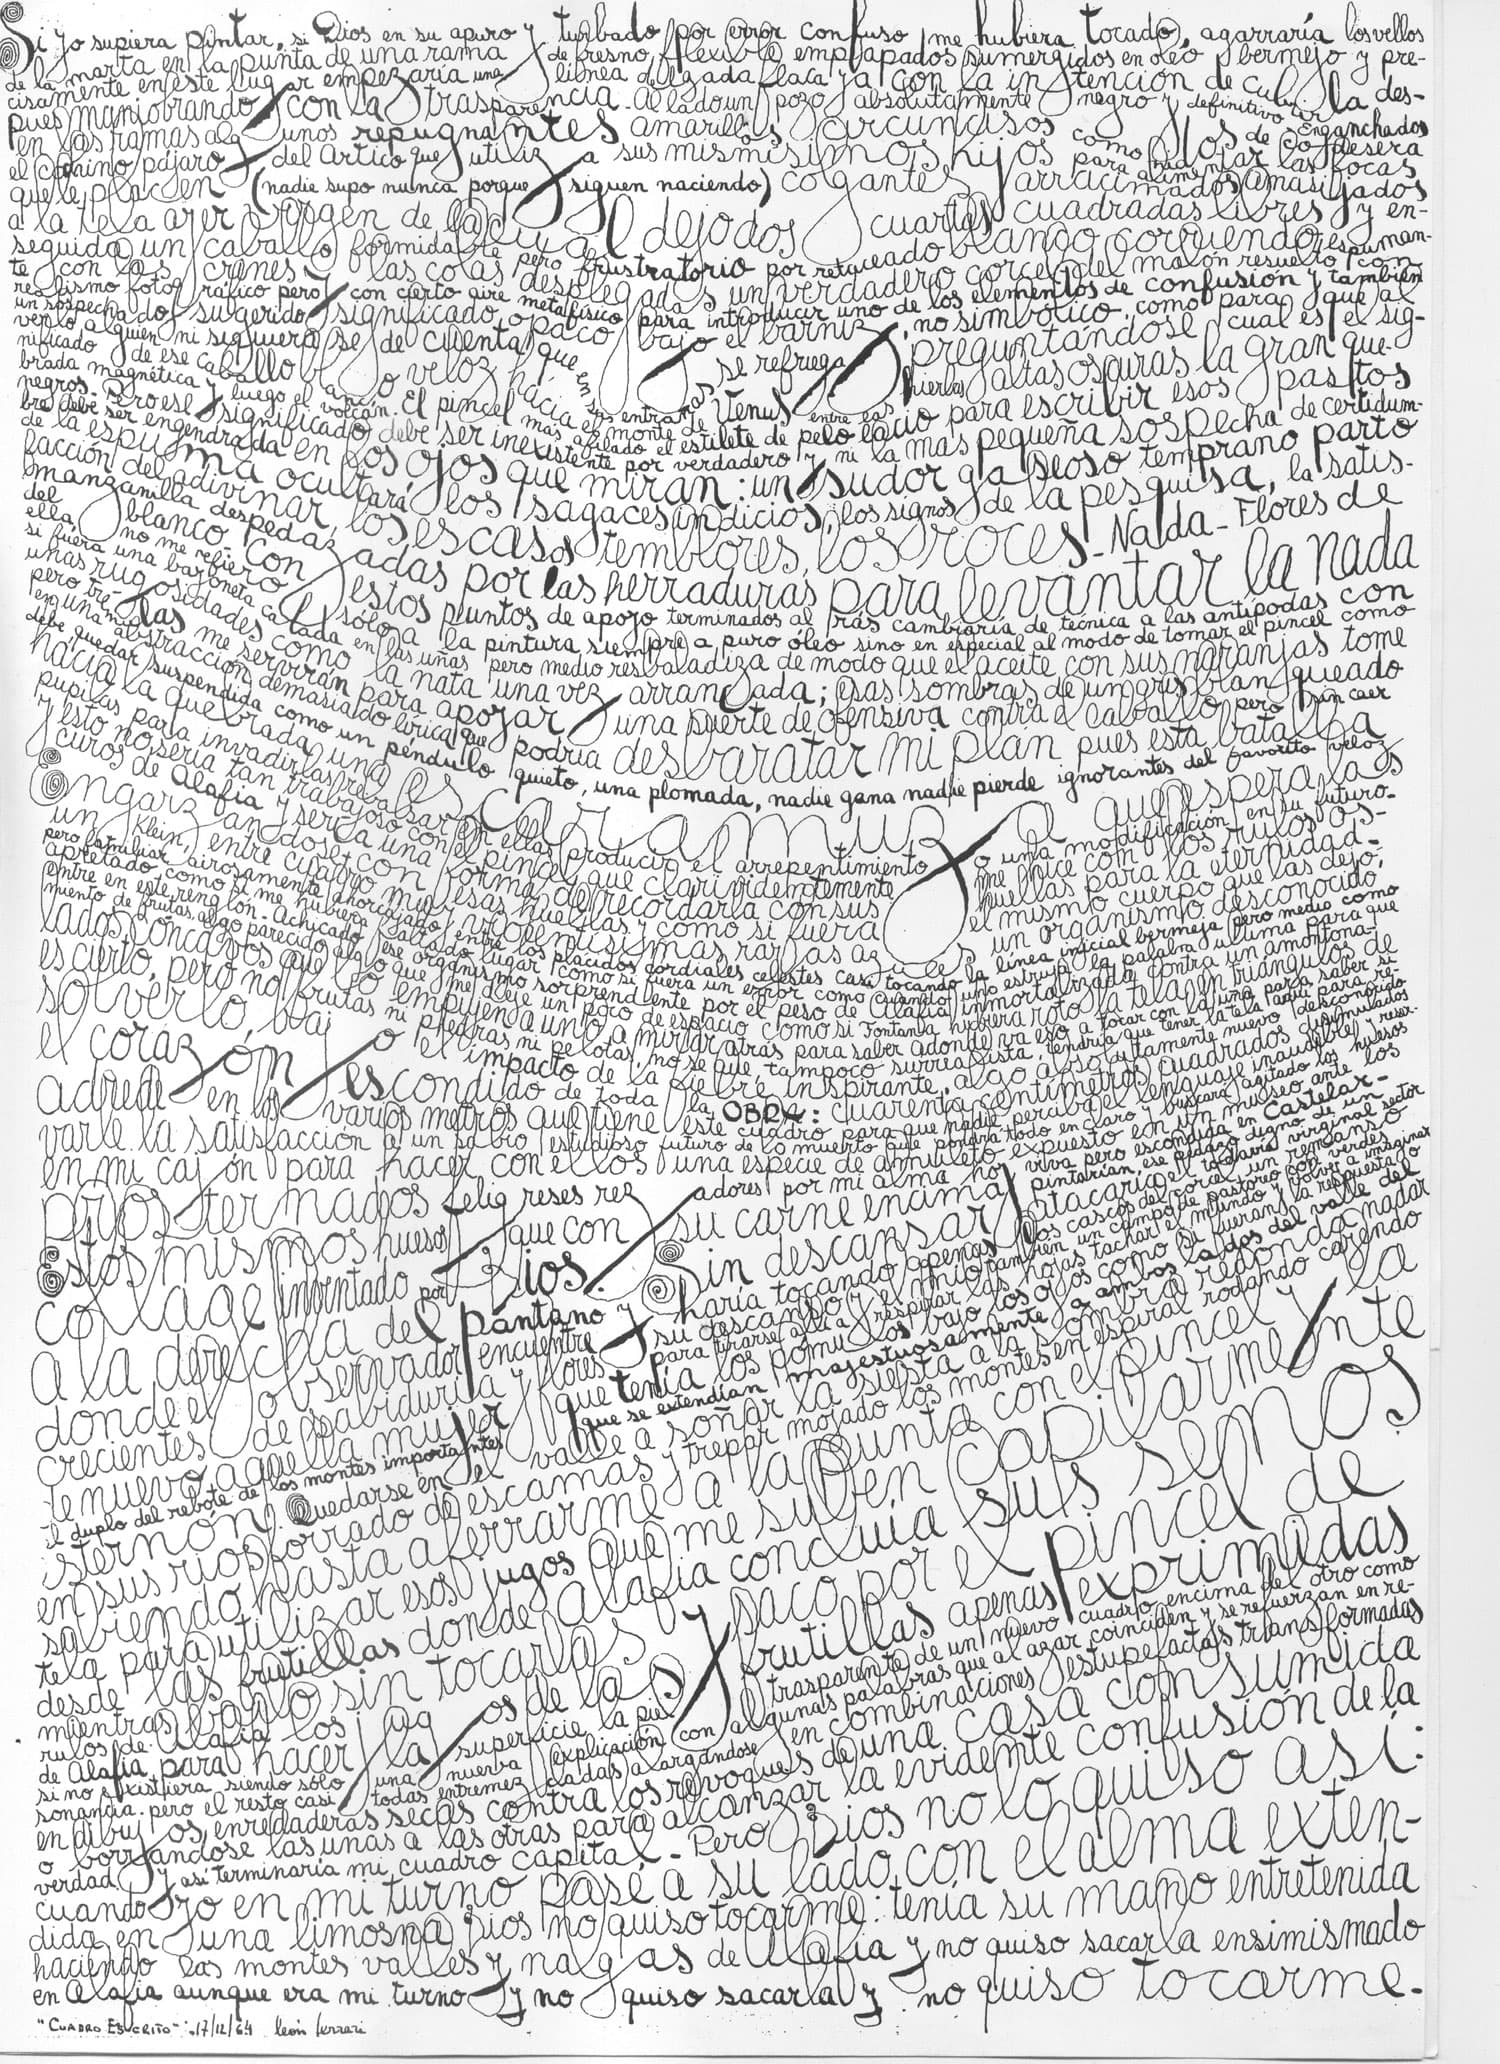 Si yo supiera pintar, si Dios en su apuro y turbado por error confuso me hubiera tocado, agarraría los vellos
de la marta en la punta de una rama de fresno flexible empapados sumergidos en óleo bermejo y pre-
cisamente en este lugar empezaría una línea delgada flaca ya con la intención de cubrir la des-
pues maniobrando con la trasparencia. Al lado un pozo absolutamente negro y definitivo
en las ramas unos repugnantes amarillos circuncisos como los de enganchados
el pájaro del Artico que utiliza a sus mismísimos hijos para alimentar las focas
que le placen (nadie supo nunca porque siguen naciendo) colgantes arracimados amasijados
a la tela ayer virgen de la cual dejo dos cuartas cuadradas libres y en-
seguida un caballo formidable pero frustratorio por retqueado blanco corriendo espuman-
te con las crines las colas desplegadas un verdadero corcel del malón resuelto con
realismo fotográfico pero con cierto aire metafísico para introducir uno de los elementos de confusión y también
un sospechado sugerido significado opaco bajo el barniz, no simbólico, como para que al
verlo alguien ni siquiera se de cuenta que en sus entrañas se refriega preguntándose cual es el sig-
nificado de ese caballo o veloz hacia el monte de Venus entre las hierbas altas oscuras la gran que-
brada magnética y luego el volcán. El pincel más afilado el estilete de pelo lacio para escribir esos pastos
negros. Pero ese significado debe ser inexistente por verdadero y ni la mas pequeña sospecha de certidum-
bre debe ser engendrada en los ojos que miran: un sudor gaseoso temprano parto
de la espuma ocultará los sagaces indicios, los signos de la pesquisa, la satis-
facción del adivinar, los escasos temblores, los roces - Nalda - Flores de
manzanilla despedazadas por las herraduras para levantar la nada
del blanco. Con estos puntos de apoyo terminados al ras cambiaría de técnica a las antípodas con
ella no me refiero sólo a la pintura siempre a puro óleo sino en especial al modo de tomar el pincel como
si fuera una bayoneta calada en las uñas pero medio resbaladiza de modo que el aceite con sus naranjas tome
unas rugosidades como la nata una vez arrancada; esas sombras de un gris blanqueado
pero trémulas me servirán para apoyar una fuerte defensiva contra el caballo pero sin caer
en una abstracción demasiado lírica que podría desbaratar mi plan pues esta batalla
debe quedar suspendida como un péndulo quieto, una plomada, nadie gana nadie pierde ignorantes del favorito veloz
hacia la quebrada, una escaramuza que espera las
pupilas para invadirlas rebalsar en ellas producir el arrepentimiento o una modificación en su futuro.
y esto no sería tan trabajoso con el pincel que clarividentemente me hice con los rulos os-
curos de Alafia y sería una forma de recordarla con sus huellas para la eternidad-
Engarzandose con esas huellas y como si fuera el mismo cuerpo que las dejó,
un Klein, entre cuatro muy violentisimas rayas azules un organismo desconocido
pero familiar airosamente ahorcajado entre los plácidos cordiales celestes casi tocando la línea inicial bermeja pero medio como
apretado como si me hubiera fallado lugar como si fuera un error como cuando uno estruja la palabra última para que
entre en este renglón. Achicado ese organismo sorprendente por el peso de Alafia inmortalizada contra un amontona-
miento de frutas. algo parecido a lo que me deje un poco de espacio como si Fontana hubiera roto la tela en triángulos de
lados cóncavos que lo empujen a uno a mirar atrás para saber adonde va eso a tocar con la una para saber si
es cierto, pero no frutas ni piedras ni pelotas, no se que, tampoco surrealista, tendría que tener la tela aquí para re-
solverlo bajo el impacto de la fiebre inspirante, algo absolutamente nuevo desconocido
el corazón escondido de toda la OBRA: cuarenta centímetros cuadrados disimulados
adrede en los varios metros que tiene este cuadro para que nadie perciba el lenguaje inaudible y reser-
varle la satisfacción a un sabio estudioso futuro de lo muerto que pondrá todo en claro y buscará agitado los huesos
en mi cajón para hacer con ellos una especie de amuleto expuesto en un museo ante los
prosternados feligreses rezadores por mi alma no viva pero escondida en Castelar-
Estos mismos huesos que con su carne encima pintarían, ese pedazo digno de un
collage inventado por Dios. Sin descansar pitacario el todavía virginal sector
a la derecha del pantano y haría tocando apenas los cascos del corcel un remanso
donde el observador encuentre su descanso y el mío también un campo de pastoreo con verdes
crecientes de sabiduría y flores para tirarse allí a respirar las hojas tachar el mundo y volver a imaginar
de nuevo a aquella mujer que tenía los pómulos bajo los ojos como si fueran la respuesta o
el duplo del rebote de los montes importantes que se extendían majestuosamente a ambos lados del valle del
esternón. Quedarse en el valle a soñar la siesta a la sombra redonda nadar
en sus ríos forrado de escamas y trepar mojado los montes en espiral rodando cayendo
sabiendo hasta aferrarme a la punta con el pincel y la
tela para utilizar esos jugos que me suben capilarmente
desde las frutillas donde Alafia concluía sus senos
mientras bailo sin tocarlas y saco por el pincel de
rulos de Alafia los jugos de las frutillas apenas exprimidas
de Alafia para hacer la superficie, la piel trasparente de un nuevo cuadro encima del otro como
si no existiera siendo sólo una nueva explicación con algunas palabras que al azar coinciden y se refuerzan en re-
sonancia. pero el resto casi todas entremezcladas alargándose en combinaciones estupefactas transformadas
en dibujos, enredaderas secas contra los revoques de una casa consumida
o borrandose las unas a las otras para alcanzar la evidente confusión de la
verdad. y así terminaría mi cuadro capital - Pero Dios no lo quiso así:
cuando yo en mi turno pasé a su lado con el alma exten-
dida en una limosna Dios no quiso tocarme: tenía su mano entretenida
haciendo las montes valles y nalgas de Alafia y no quiso sacarla ensimismado
en Alafia aunque era mi turno y no quiso sacarla y no quiso tocarme.
"CUADRO ESCRITO" - 17/12/64 León Ferrari